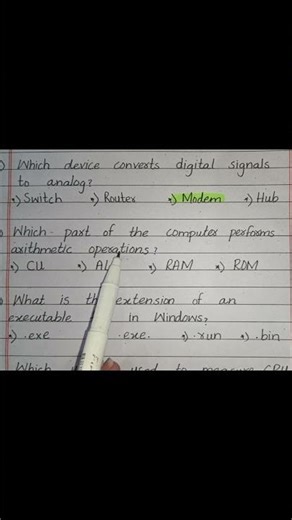 Which device converts digital signals
to analog?
•) Switch •) Router •) Modem •) Hub
Which part of the computer performs
arithmetic operations?
•) CU •) RAM •) ROM
What is extension of an
executable in Windows?
•) .exe .exe. •) .run •) .bin
Which used to measure CPU